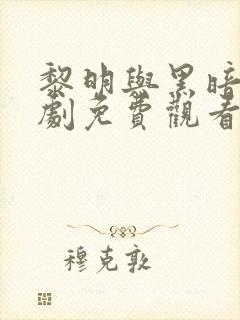 黎明與黑暗
劇免費觀看
穆克敦